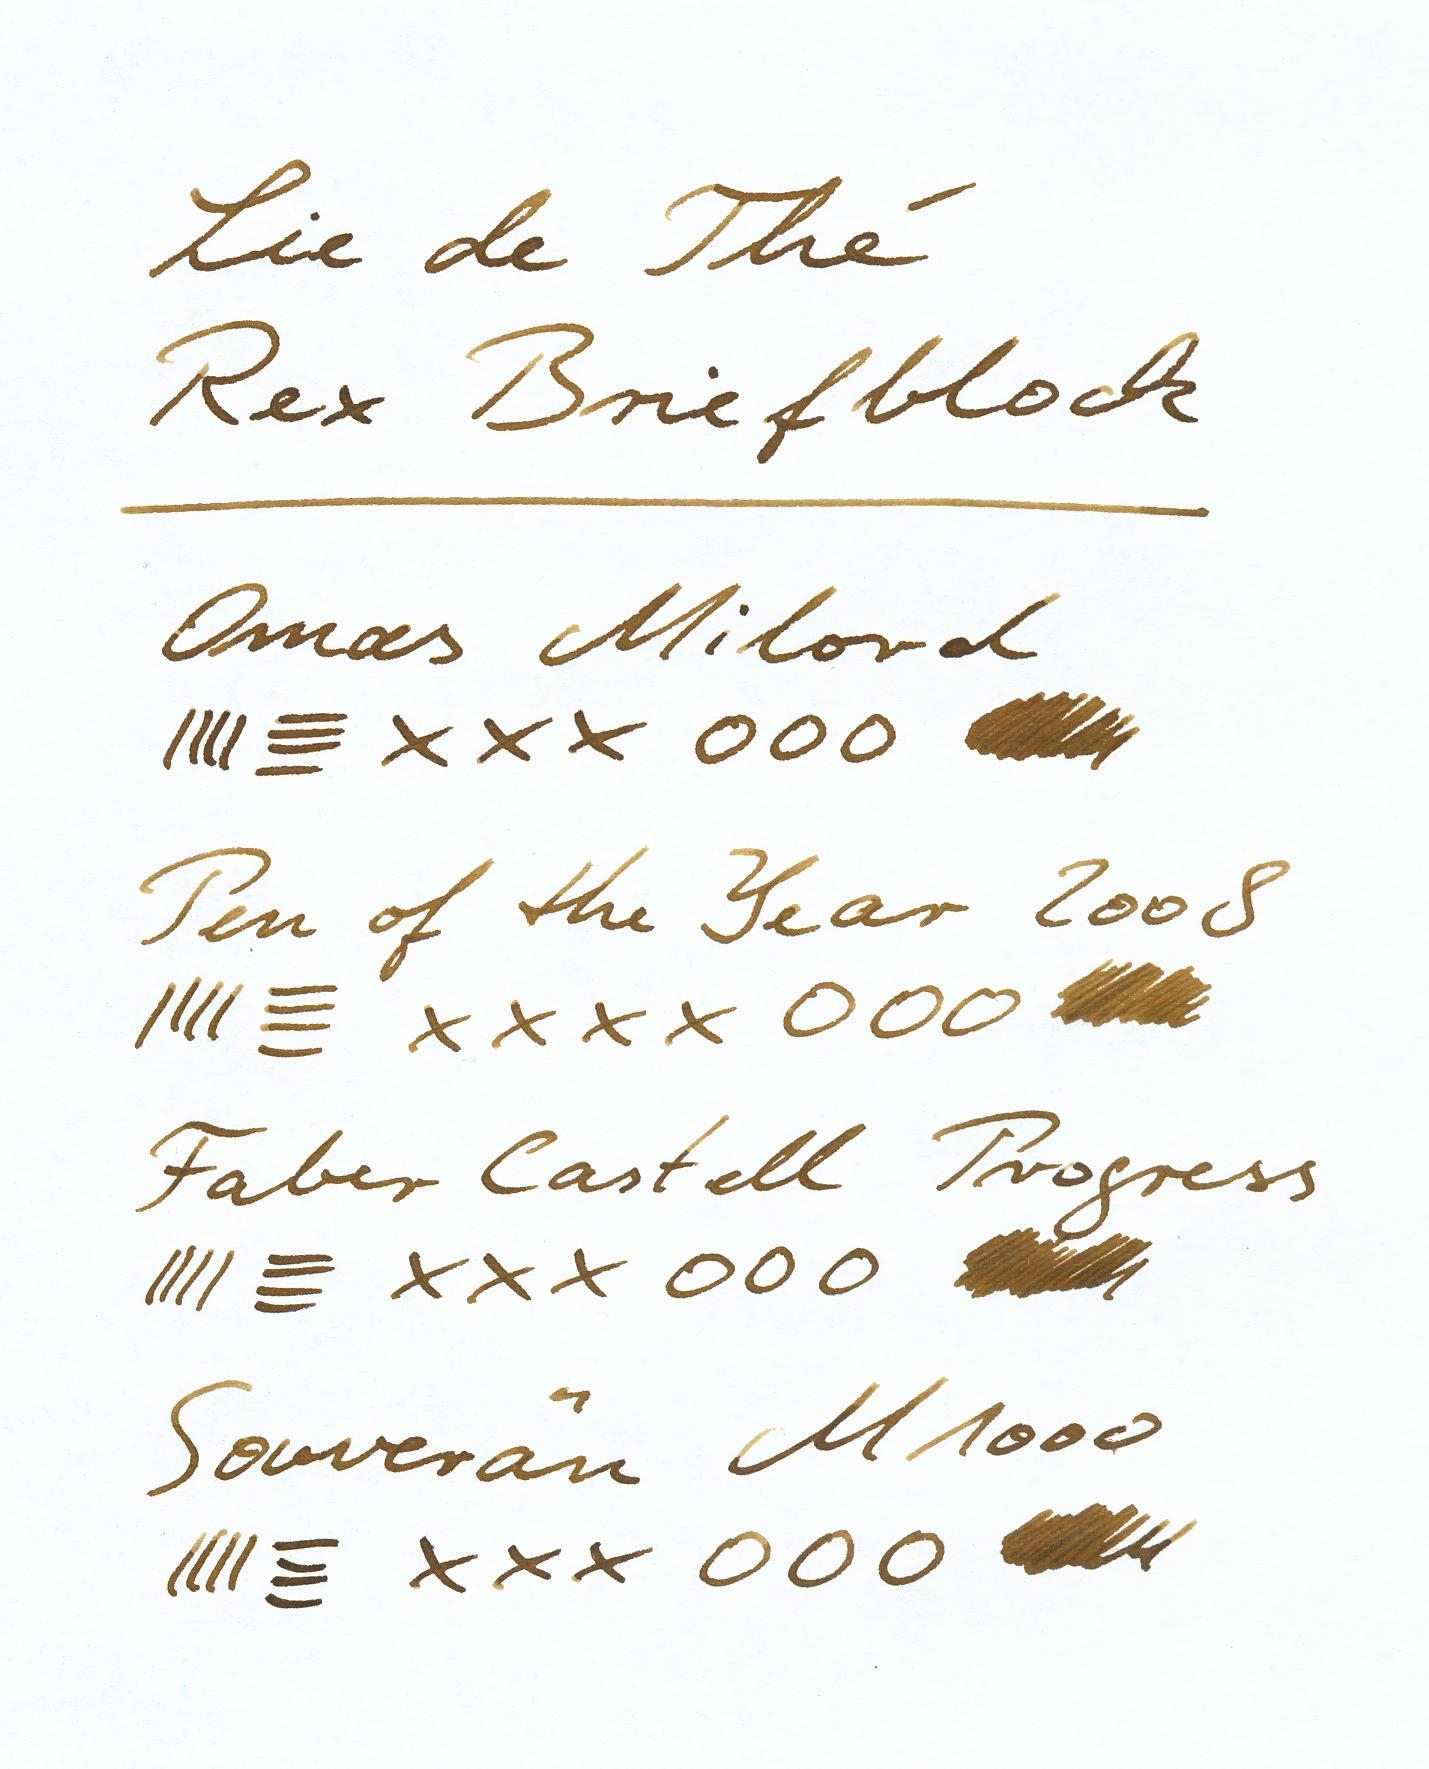 Lie de Thé
Rex Briefblock
Omas Milord
xxx ooo
Pen of the Year 2008
xxxx ooo
Faber Castell Progress
xxx ooo
Souverän M1000
xxx ooo